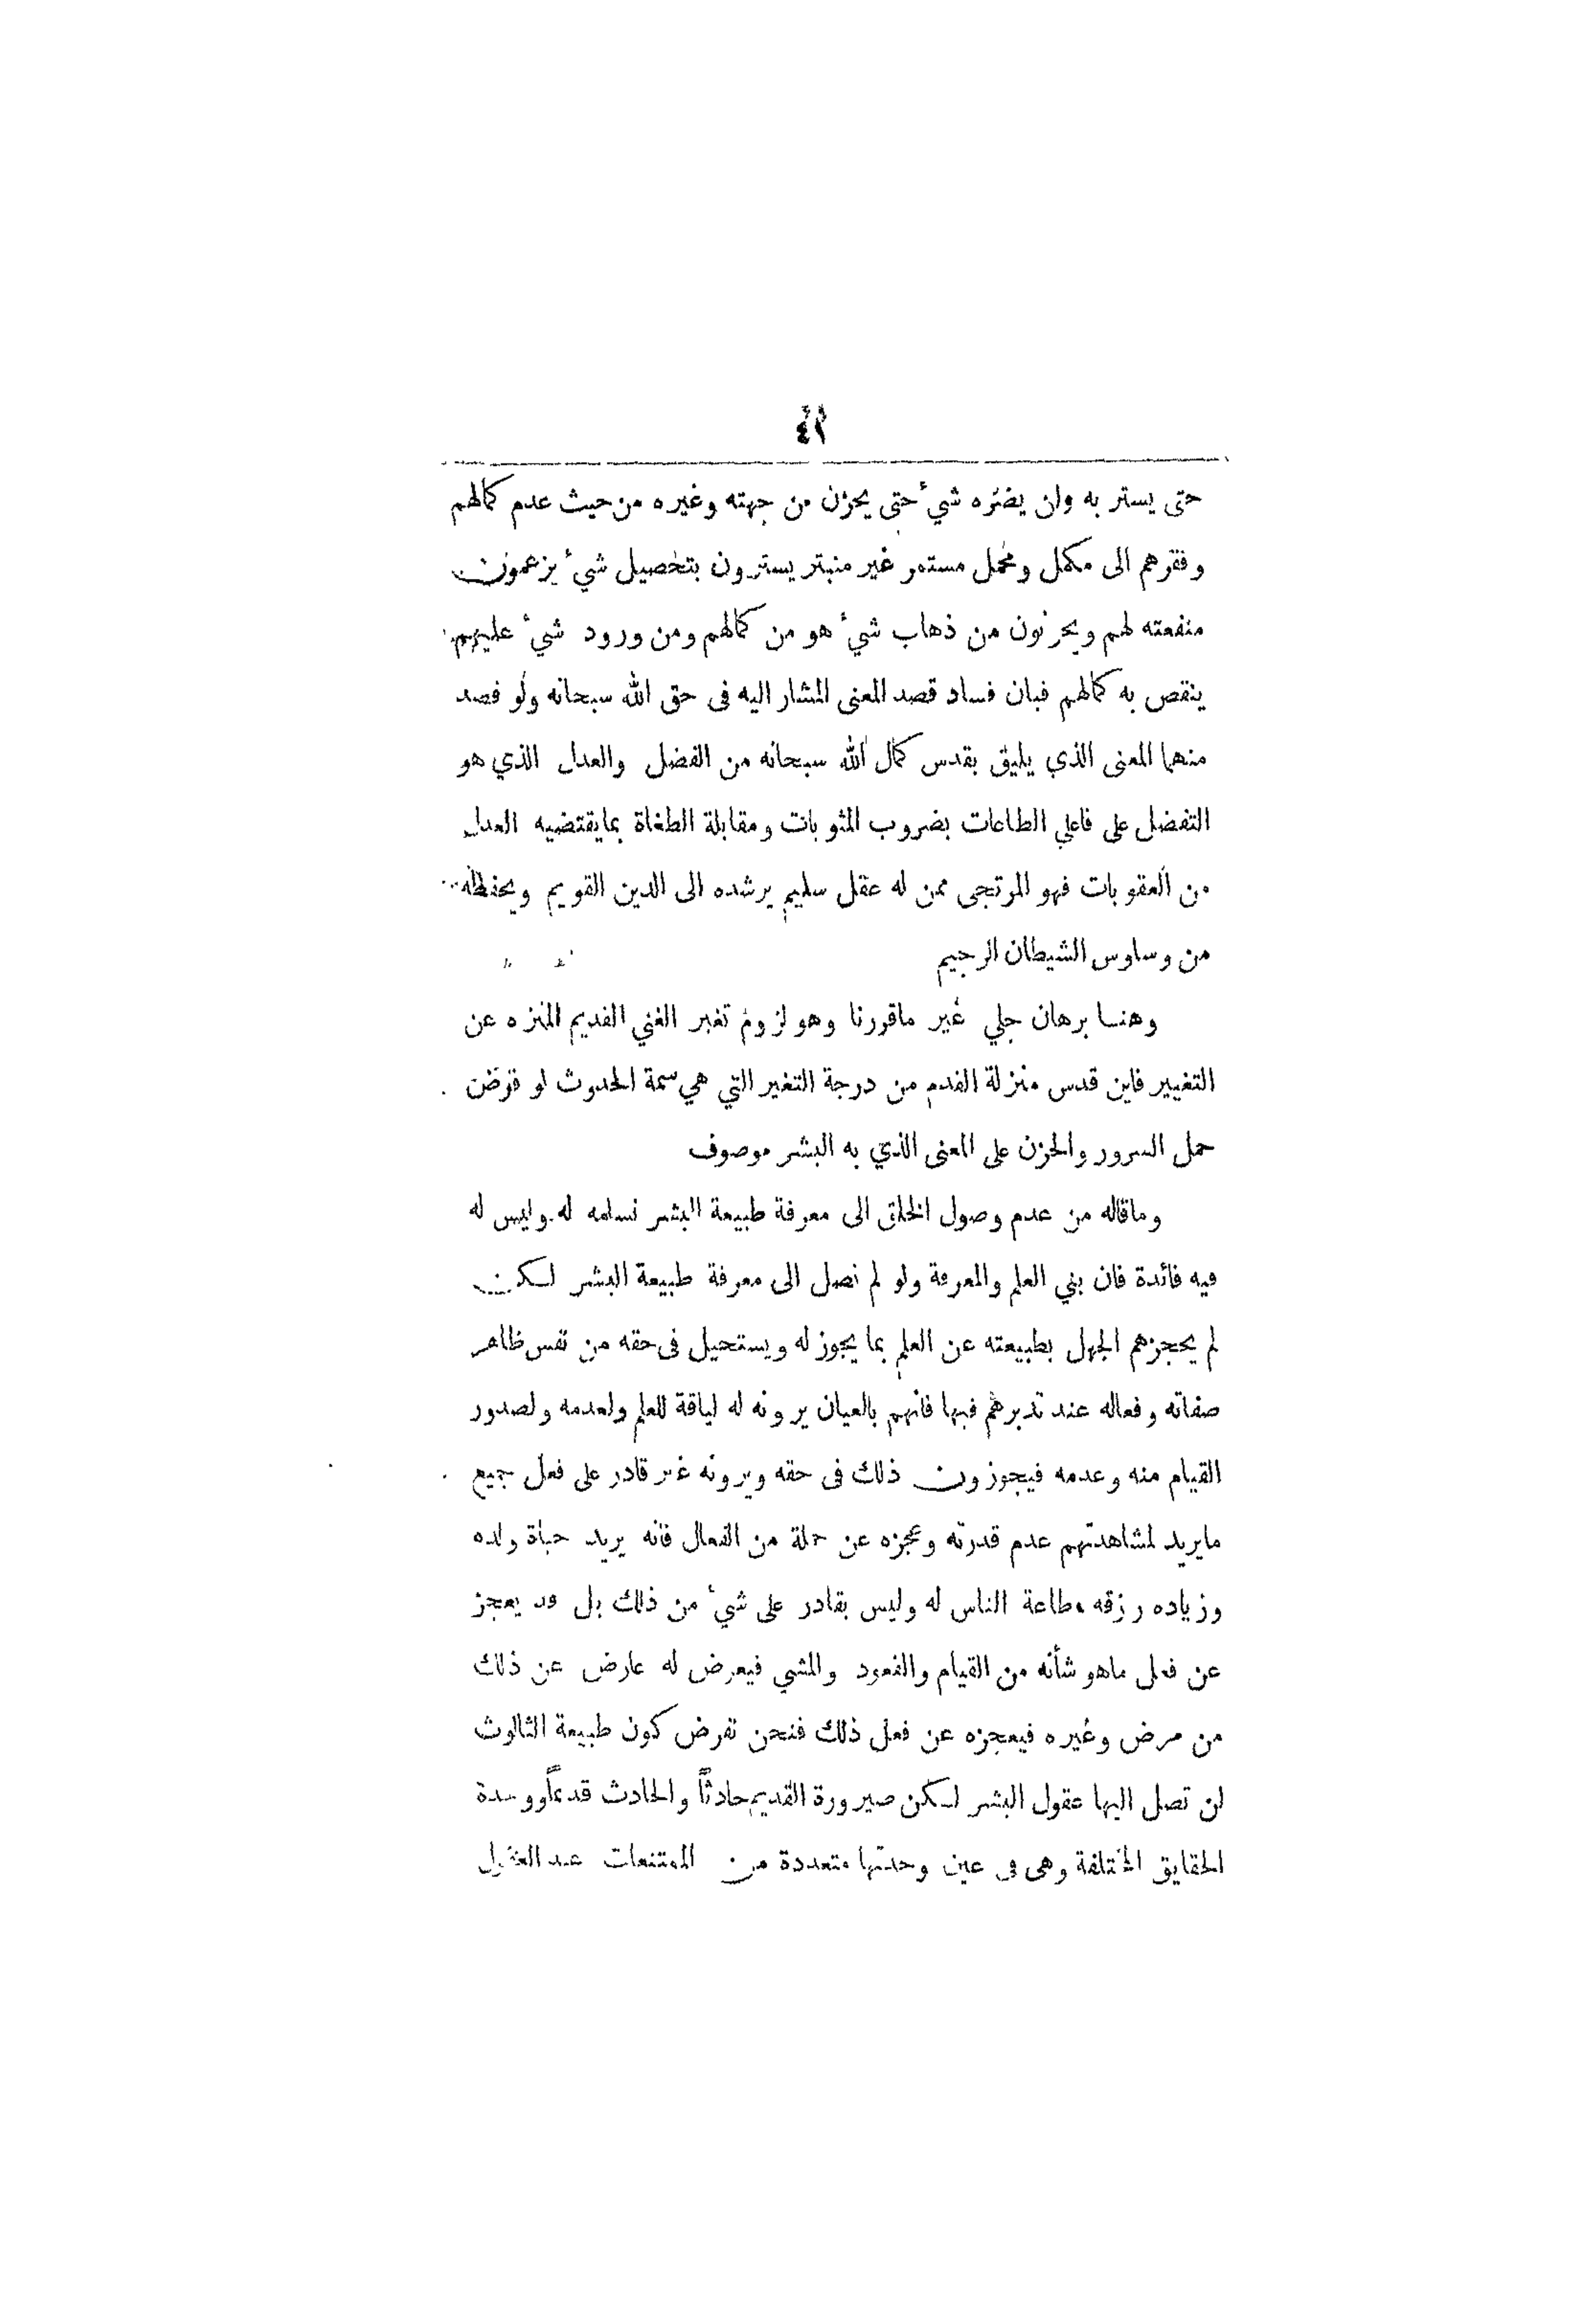 ٤٢
حتى يستر به وان يضره شيء حتى يحزن من جهته وغيره من حيث عدم كمالهم
وفقرهم الى مكمل ومجمل مستمر غير منبتر يسترون بتحصيل شيء يزعمون
منفعته لهم ويحزنون من ذهاب شيء هو من كمالهم ومن ورود شيء عليهم
ينقص به كمالهم فبان فساد قصد المعنى المشار اليه فى حق الله سبحانه ولو قصد
منهما المعنى الذي يليق بقدس كمال الله سبحانه من الفضل والعدل الذي هو
التفضل على فاعلي الطاعات بضروب المثوبات ومقابلة الطغاة بما يقتضيه العدل
من العقوبات فهو المرتجى ممن له عقل سليم يرشده الى الدين القويم ويحفظه
من وساوس الشيطان الرجيم
وهنا برهان جلي غير ماقررنا وهو لزوم تغير الغني القديم المنزه عن
التغيير فاين قدس منزلة القدم من درجة التغير التي هي سمة الحدوث لو فرض
حمل السرور والحزن على المعنى الذي به البشر موصوف
وماقاله من عدم وصول الخلق الى معرفة طبيعة البشر نسلمه له وليس له
فيه فائدة فان بني العلم والمعرفة ولو لم نصل الى معرفة طبيعة البشر لكن
لم يحجزهم الجهل بطبيعته عن العلم بما يجوز له ويستحيل فى حقه من نفس ظاهر
صفاته وفعاله عند تدبرهم فيها فانهم بالعيان يرونه له لياقة للعلم ولعدمه ولصدور
القيام منه وعدمه فيجوزون ذلك فى حقه ويرونه غير قادر على فعل جميع
مايريد لمشاهدتهم عدم قدرته وعجزه عن جملة من الفعال فانه يريد حياة ولده
وزياده رزقه وطاعة الناس له وليس بقادر على شيء من ذلك بل قد يعجز
عن فعل ماهو شأنه من القيام والقعود والمشي فيعرض له عارض عن ذلك
من مرض وغيره فيعجزه عن فعل ذلك فنحن نفرض كون طبيعة الثالوث
لن تصل اليها عقول البشر لكن صيرورة القديم حادثاً والحادث قديماً ووحدة
الحقايق المختلفة وهى فى عين وحدتها متعددة من الممتنعات عند العقول